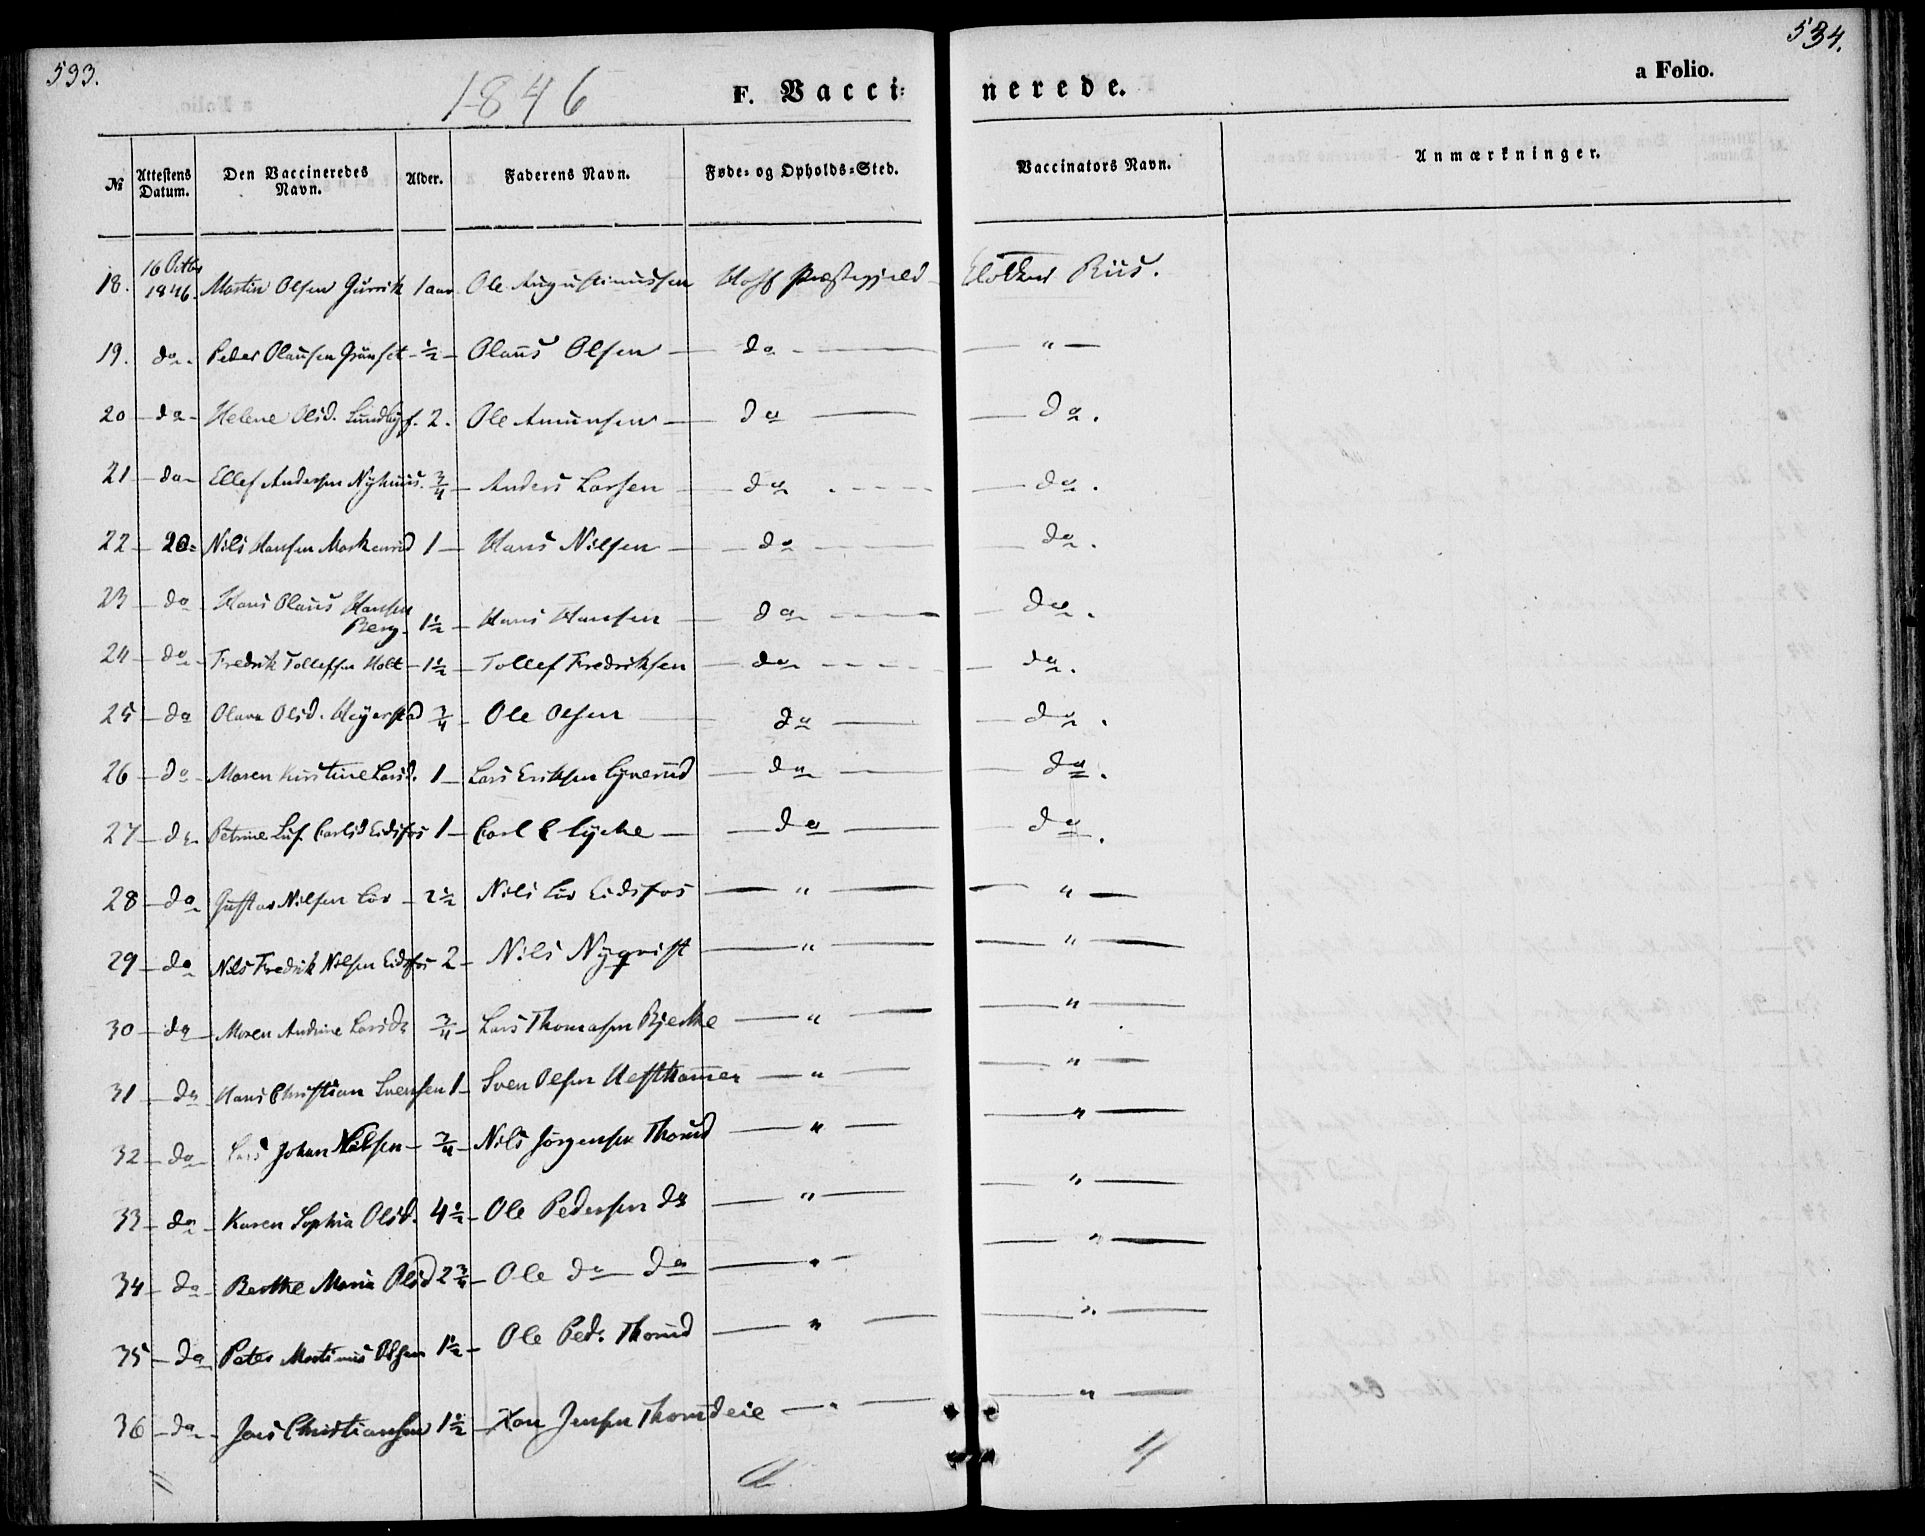 593.
534.
1846
F. Vacci-
nerede.
a Folio.
№
Attestens Datum.
Den Vaccineredes Navn.
Alder.
Faderens Navn.
Føde- og Opholds-Sted.
Vaccinators Navn.
Anmærkninger.
18. 16 Octbr 1846. Martin Olsen 1 aar Ole Augustinussen Hoff Præstegjeld Klokker Riis.
19. do Peder Olausen Grünset ½ Olaus Olsen do "
20 do Helene Olsd. Lundby 2. Ole Amunsen do do.
21 do Ellef Andersen Nyhuus. ¾ Anders Larsen do do.
22 20 Nils Hansen 1 Hans Nilsen do do.
23 do Hans Olaus Hansen
Berg 1½ Hans Hansen do do.
24 do Fredrik Tollefsen Holt 1½ Tollef Fredriksen do do.
25 do Olava Olsd. ¾ Ole Olsen do do.
26 do Maren Kirstine Larsd. 1 Lars Eriksen do do.
27 do Petrine Carlsd Eidsfos 1 Carl do do.
28 do Gustav Nilsen 2½ Nils Eidsfos " "
29 do Nils Fredrik Nilsen Eidsfos 2 Nils Nyqvist " "
30 do Maren Andrine Larsdr ¾ Lars Thomasen Bjerke " "
31 do Hans Christian Svensen 1 Sven Olsen " "
32 do Lars Johan Nilsen ¾ Nils Jørgensen Thorud " "
33 do Karen Sophia Olsd. 4½ Ole Pedersen do " "
34 do Berthe Maria Olsd 2¾ Ole do do " "
35 do Peter Martinus Olsen 1½ Ole Peds. Thorud " "
36 do Christiansen 1½ Jensen Thorudeie " "